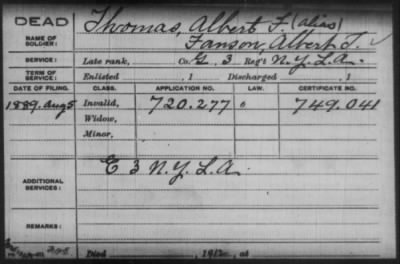 DEAD
Thomas, Albert F. (alias)
NAME OF SOLDIER:
Fanson, Albert T.
SERVICE:
Late rank, Co. G, 3 Reg't N.Y.L.A.
TERM OF SERVICE:
Enlisted , 1 Discharged , 1
DATE OF FILING. CLASS. APPLICATION NO. LAW. CERTIFICATE NO.
1889. Aug 5 Invalid, 720.277 " 749.041
Widow,
Minor,
ADDITIONAL SERVICES:
E 3 N.Y.L.A.
REMARKS:
Died , 191 , at